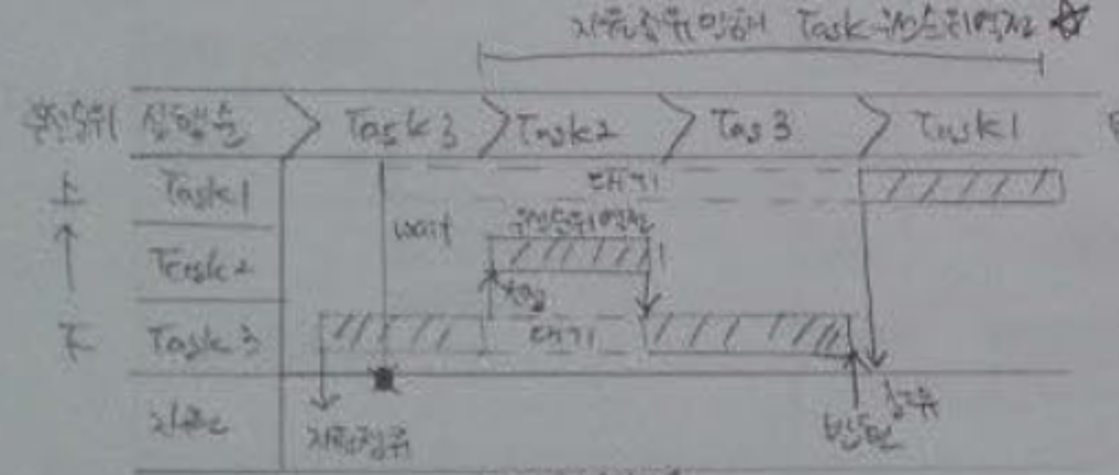 자원점유 의해 Task 우선순위역전 ☆
우선순위 실행순 Task3 Task2 Tas3 Task1
上 Task1 대기
wait 우선순위역전
Task2
선점
下 Task3 대기
자원 자원점유 반환 점유